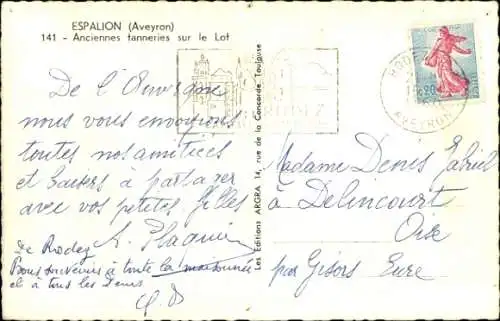 ESPALION (Aveyron)
141 - Anciennes tanneries sur le Lot
RODEZ
RODEZ
AVEYRON
De l'Auvergne
nous vous envoyons
toutes nos amitiées
et baisers à partager
avec vos petites filles
de Rodez
Bons souvenirs à toute la maisonnée
et à tous les Denis
Les Editions ARGRA 14, rue de la Concorde Toulouse
Madame Denis Gabriel
à Delincourt
Oise
par Gisors Eure